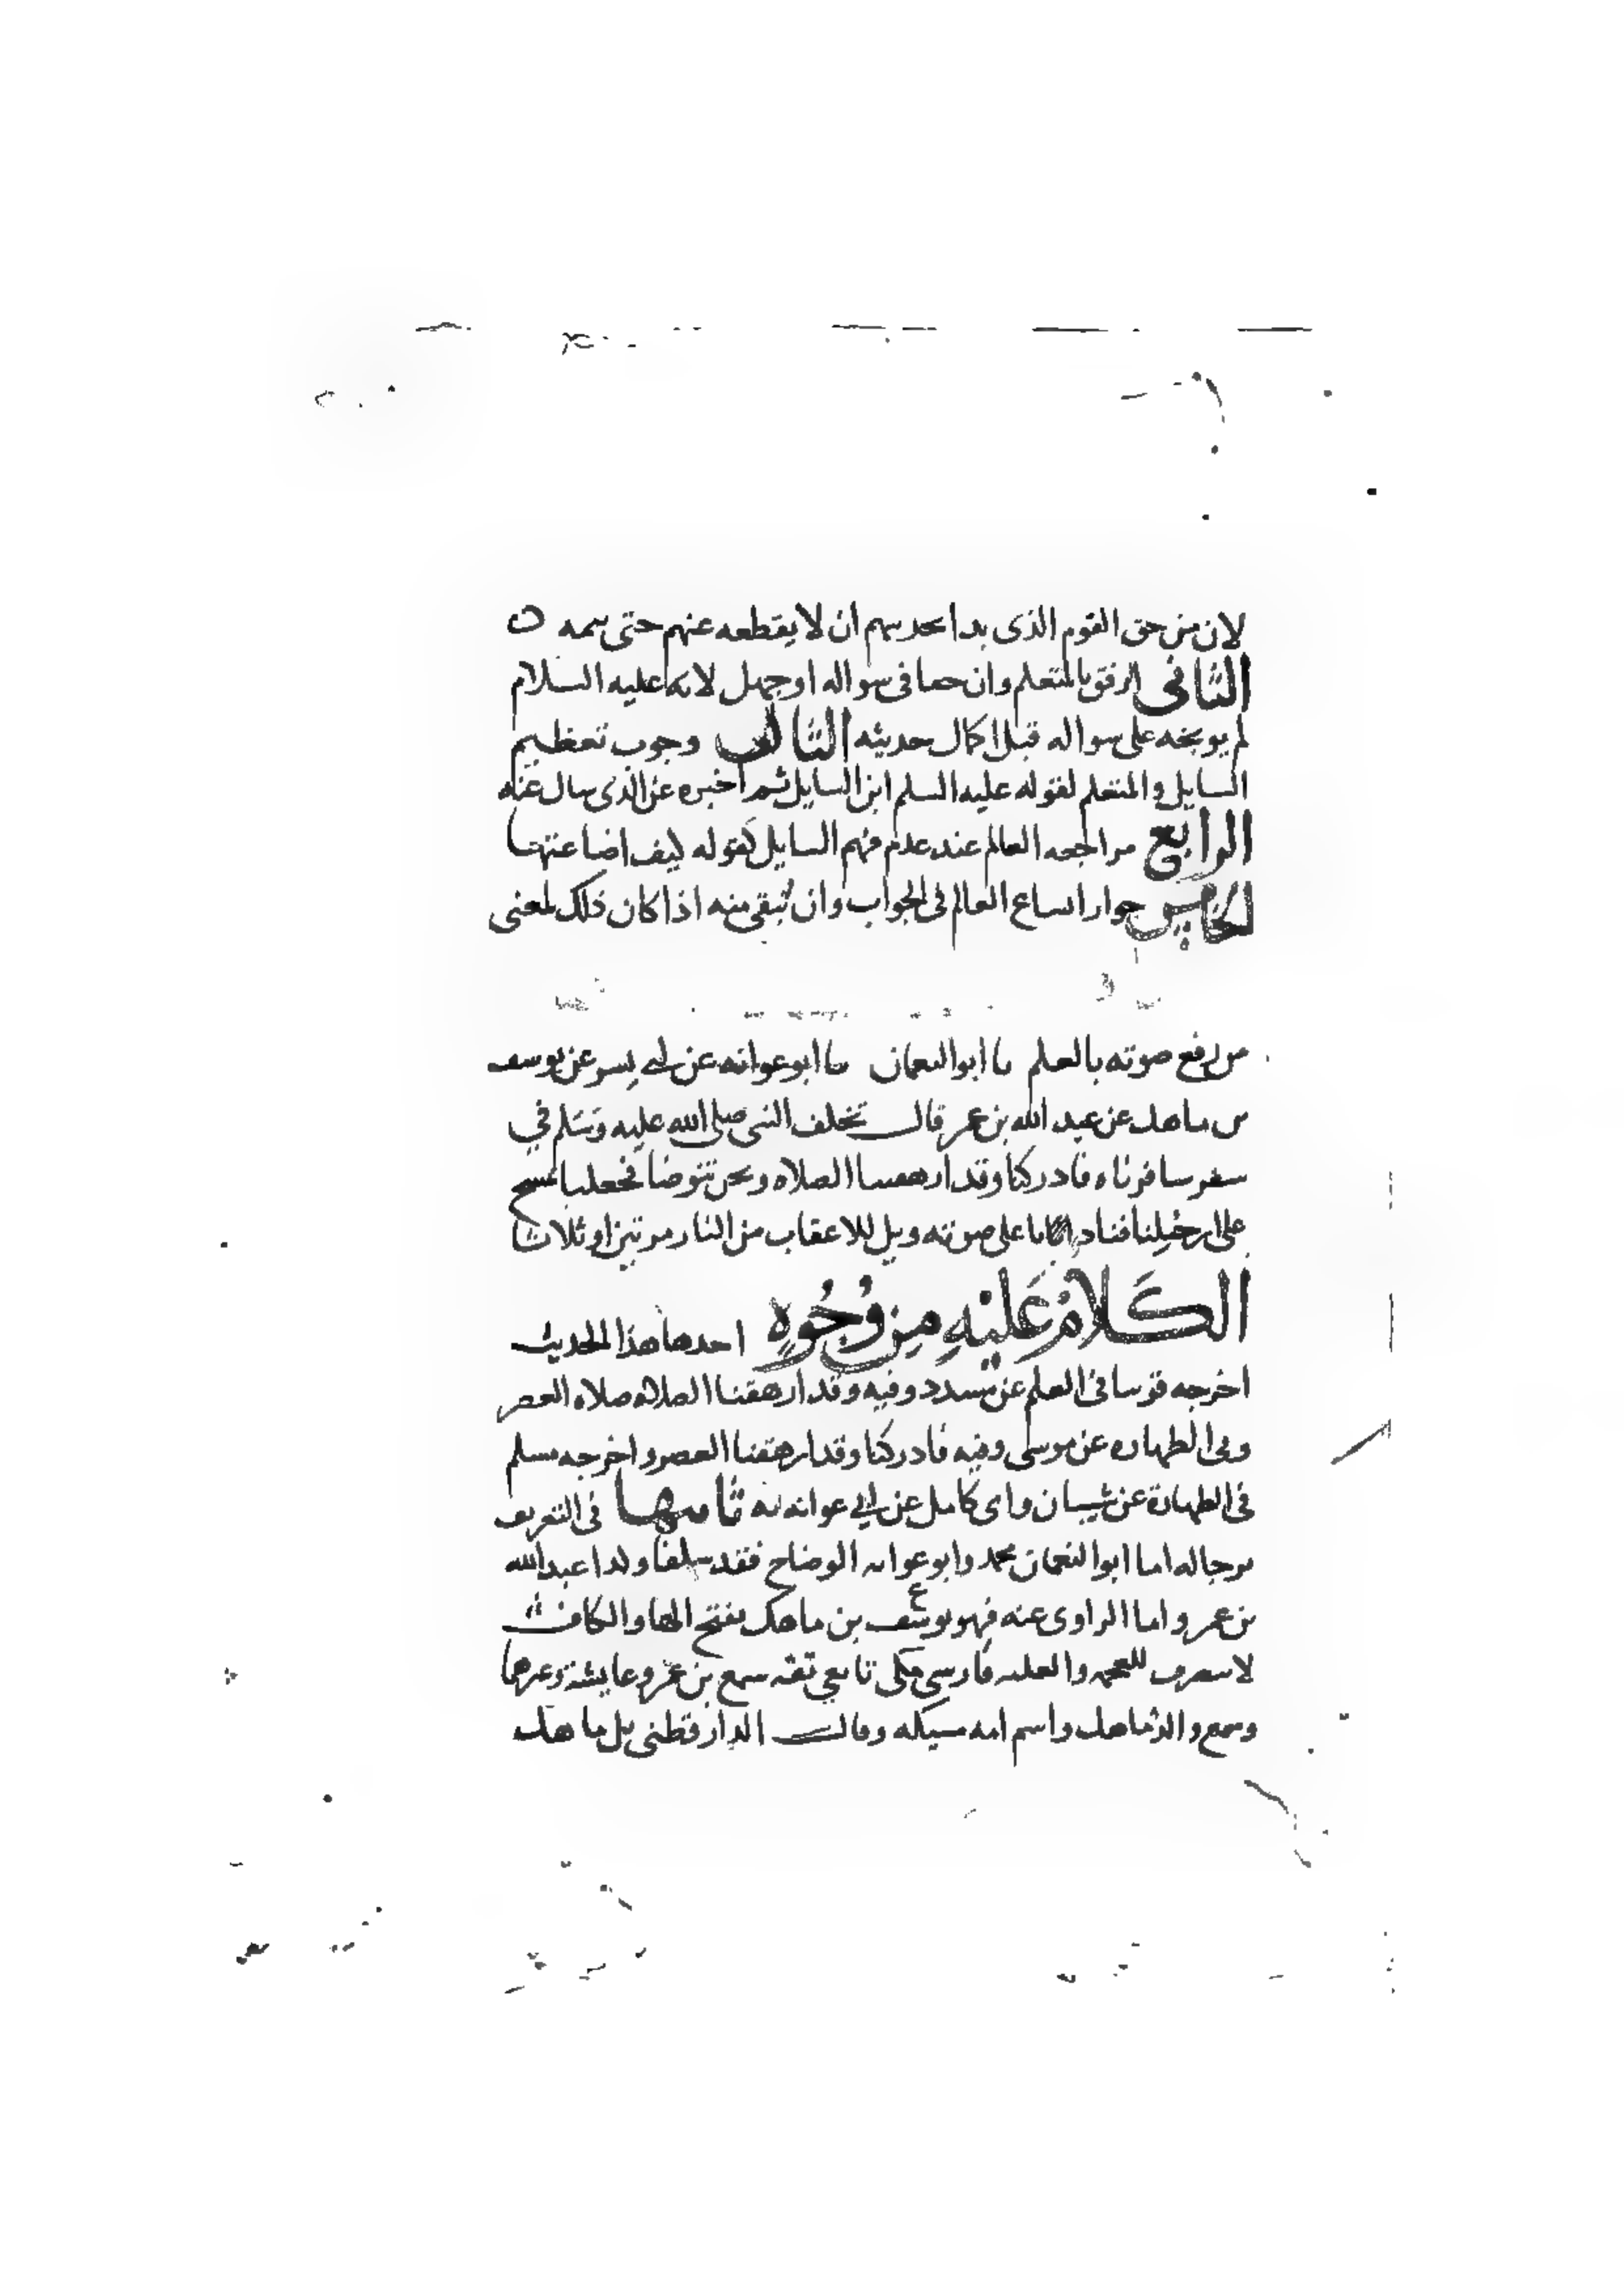 لان من حق القوم الذى بدا بحديثهم ان لا يقطعه عنهم حتى يتمه ن
الثانى الرفق بالمتعلم وان جفا فى سواله او جهل لانه عليه السلام
لم يوبخه على سواله قبل اكمال حديثه الثالث وجوب تعظيم
السايل والمتعلم لقوله عليه السلم اين السايل ثم اخبره عن الذى سال عنه
الرابع مراجعه العالم عند عدم فهم السايل لقوله كيف اضاعتها
الخامس جواز اتساع العالم فى الجواب وان تبقى منه اذا كان ذلك لمعنى
من رفع صوته بالعلم نا ابو النعمان نا ابو عوانه عن ابى بشر عن يوسف
بن ماهك عن عبد الله بن عمرو قال تخلف النبى صلى الله عليه وسلم في
سفر سافرناه فادركنا وقد ارهقتنا الصلاه ونحن نتوضا فجعلنا نمسح
على ارجلنا فنادى باعلى صوته ويل للاعقاب من النار مرتين او ثلاثا
الكَلامُ عَلَيْهِ مِن وُجُوهٍ احدها هذا الحديث
اخرجه قريبا فى العلم عن مسدد وفيه وقد ارهقنا الصلاه صلاه العصر
وفى الطهاره عن موسى وفيه فادركنا وقد ارهقنا العصر واخرجه مسلم
فى الطهارة عن شيبان وابى كامل عن ابي عوانه به ثانيها فى التعريف
برجاله اما ابو النعمان محمد وابو عوانه الوضاح فقد سلفا وكذا عبد الله
بن عمرو اما الراوى عنه فهو يوسف بن ماهك بفتح الها والكاف
لا ينصرف للعجمه والعلميه فارسى مكى تابعي ثقه سمع بن عمرو عايشة وغيرهما
وسمع والده ماهك واسم امه مسيكه وقال الدارقطنى بل ماهك